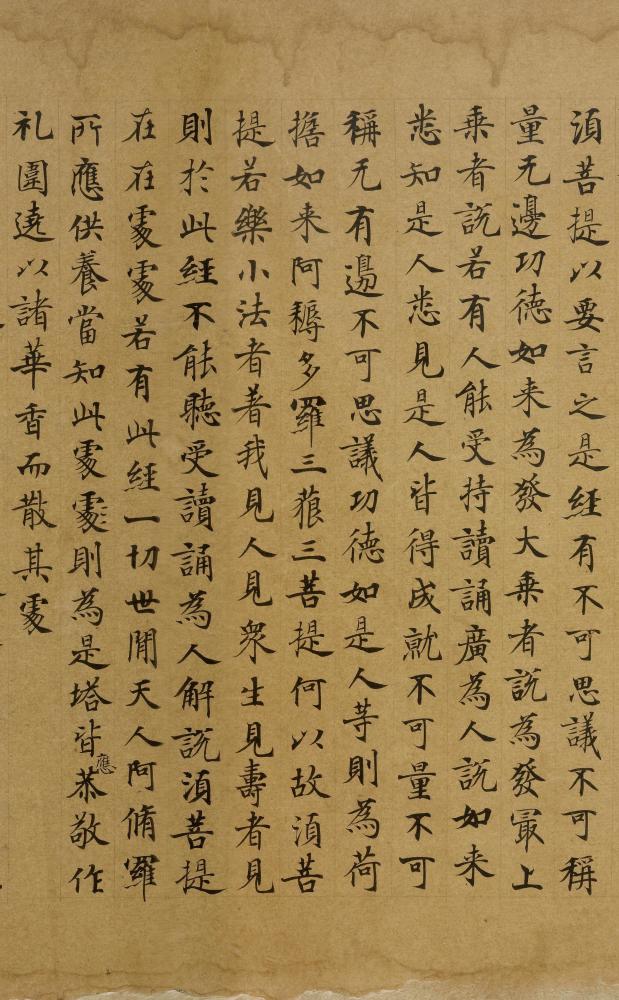 須菩提以要言之是經有不可思議不可稱
量无邊功德如来為發大乗者說為發冣上
乗者說若有人能受持讀誦廣為人說如来
悉知是人悉見是人皆得成就不可量不可
稱无有邊不可思議功德如是人等則為荷
擔如来阿耨多羅三藐三菩提何以故須菩
提若樂小法者著我見人見衆生見壽者見
則於此經不能聽受讀誦為人解說須菩提
在在處處若有此經一切世間天人阿脩羅
所應供養當知此處處則為是塔皆應恭敬作
礼圍遶以諸華香而散其處